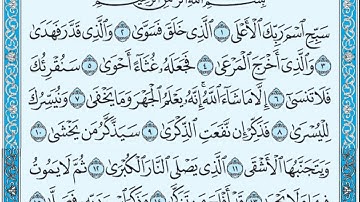 بِسْمِ اللَّهِ الرَّحْمَٰنِ الرَّحِيمِ
سَبِّحِ اسْمَ رَبِّكَ الْأَعْلَى ١ الَّذِي خَلَقَ فَسَوَّىٰ ٢ وَالَّذِي قَدَّرَ فَهَدَىٰ
٣ وَالَّذِي أَخْرَجَ الْمَرْعَىٰ ٤ فَجَعَلَهُ غُثَاءً أَحْوَىٰ ٥ سَنُقْرِئُكَ
فَلَا تَنسَىٰ ٦ إِلَّا مَا شَاءَ اللَّهُ إِنَّهُ يَعْلَمُ الْجَهْرَ وَمَا يَخْفَىٰ ٧ وَنُيَسِّرُكَ
لِلْيُسْرَىٰ ٨ فَذَكِّرْ إِن نَّفَعَتِ الذِّكْرَىٰ ٩ سَيَذَّكَّرُ مَن يَخْشَىٰ ١٠
وَيَتَجَنَّبُهَا الْأَشْقَى ١١ الَّذِي يَصْلَى النَّارَ الْكُبْرَىٰ ١٢ ثُمَّ لَا يَمُوتُ